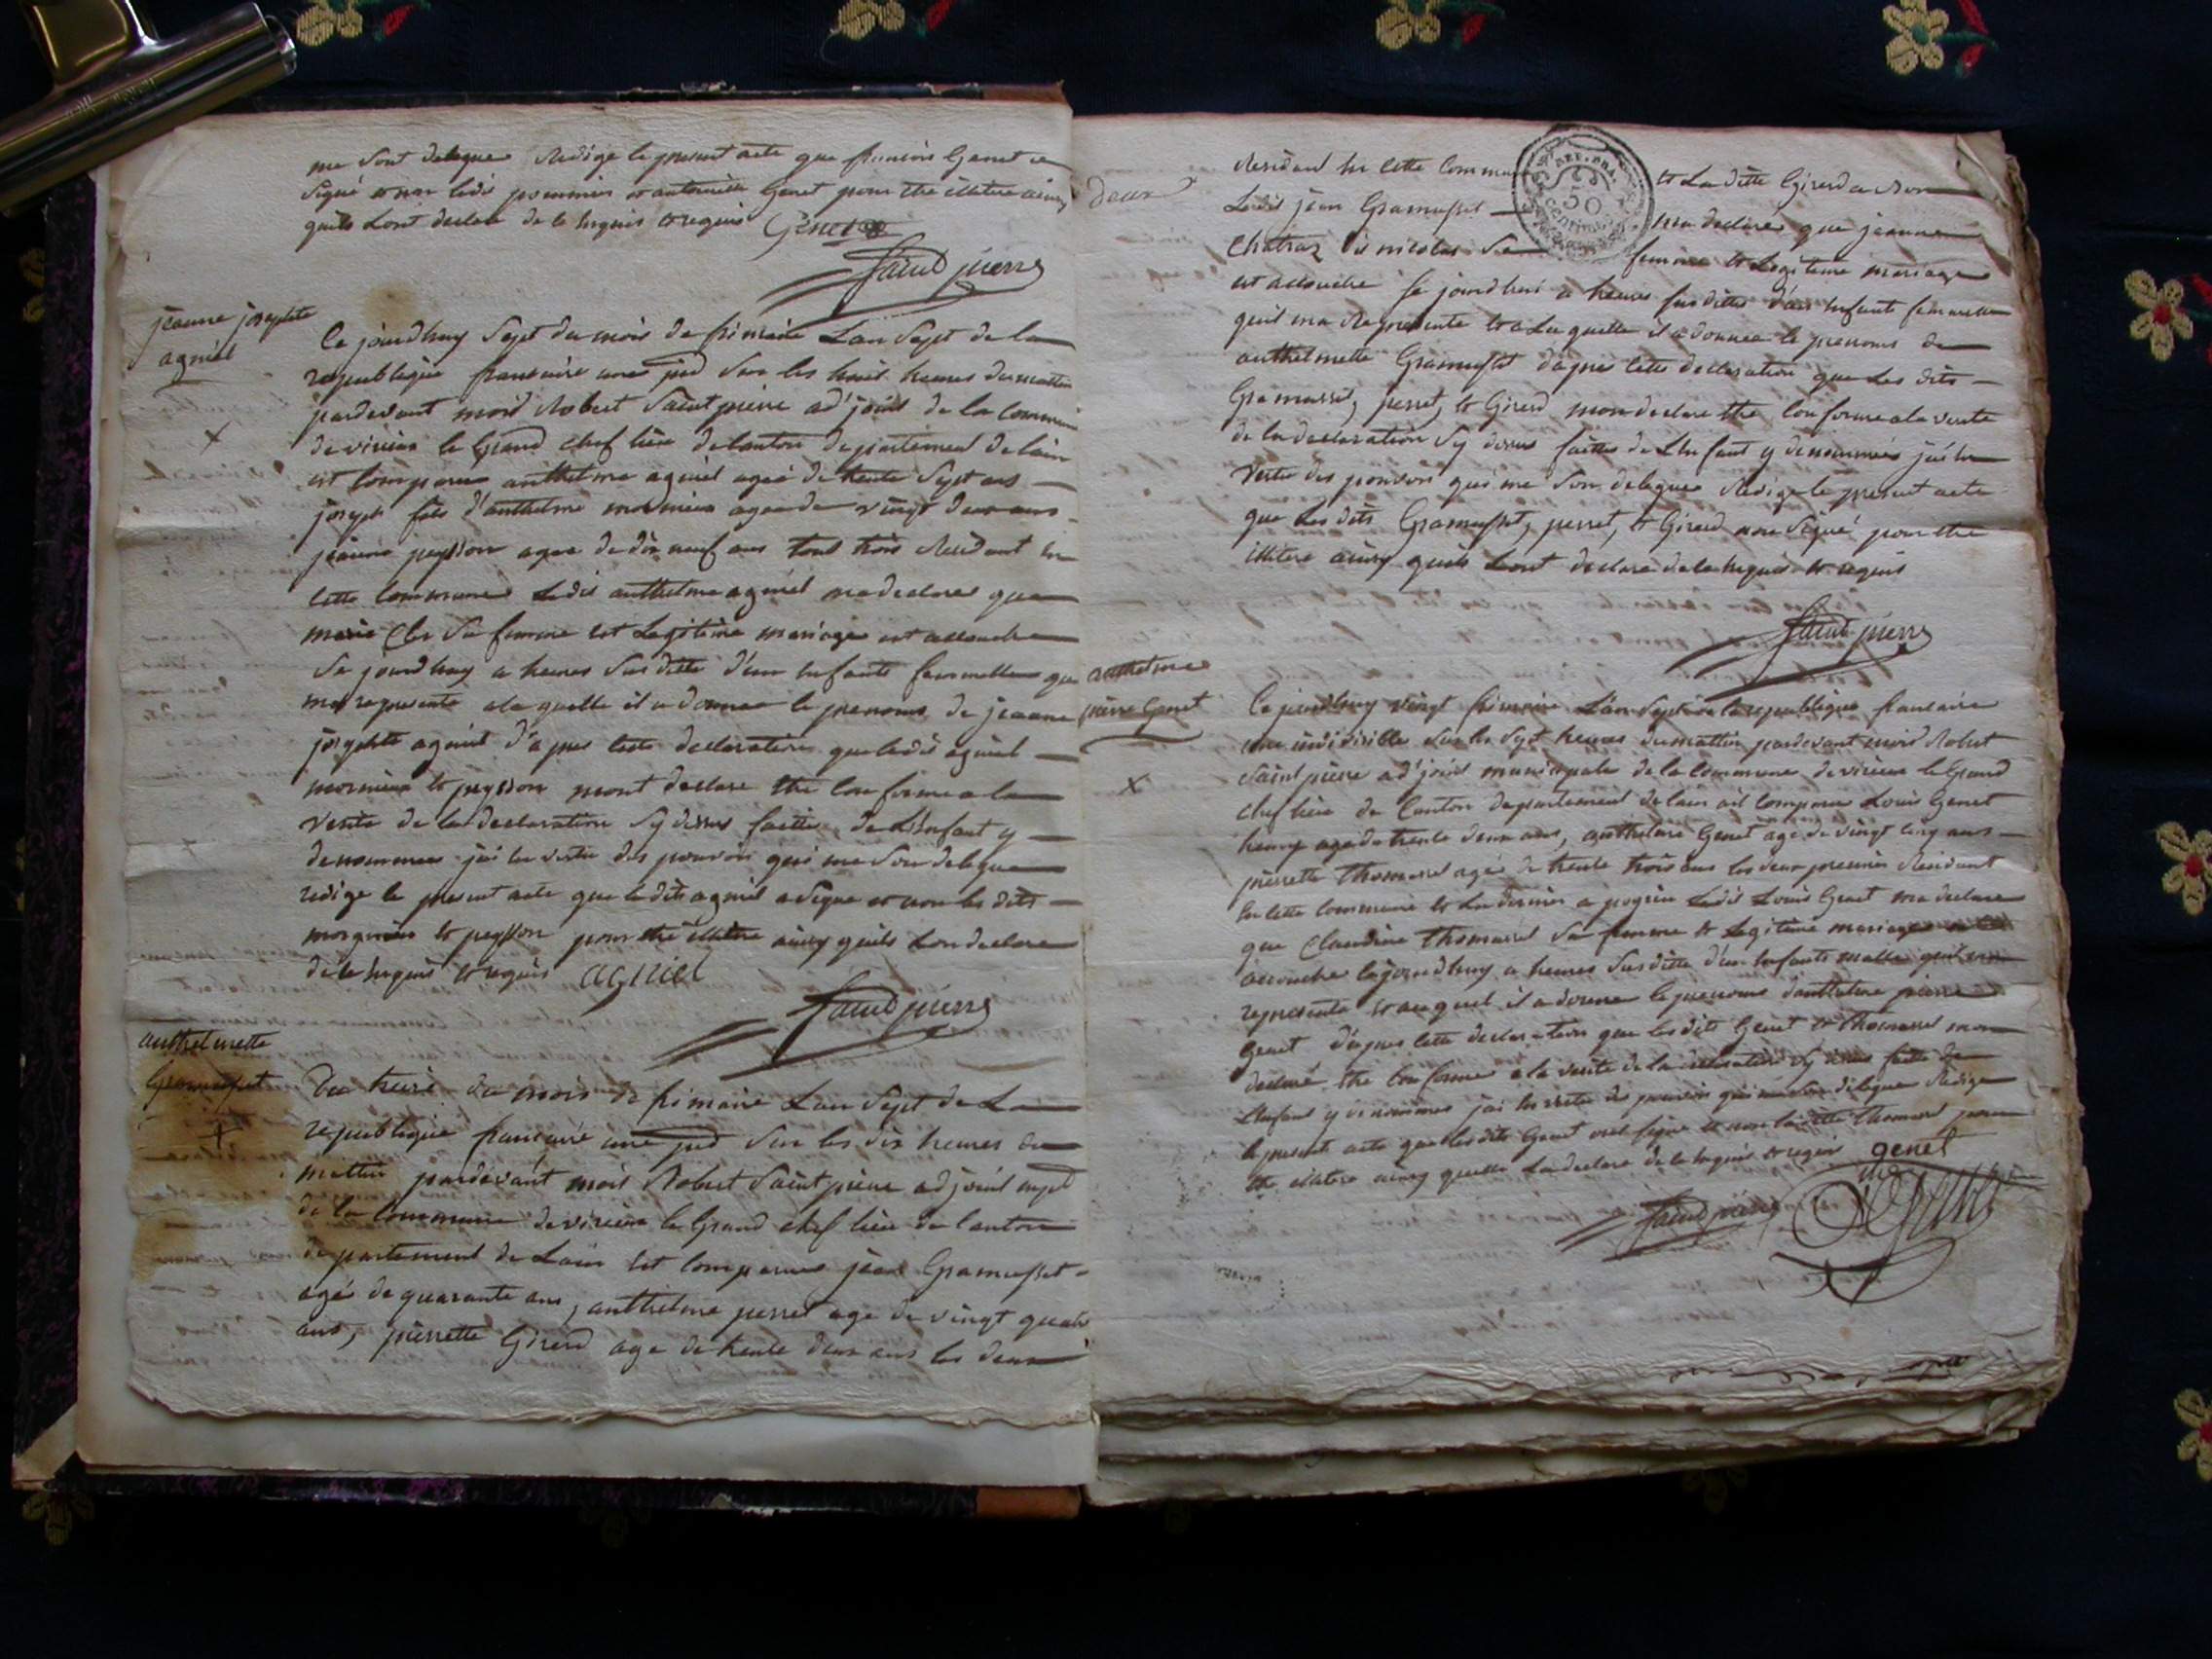 me sont delegue Redige le present acte que francois Genet a
signé et non ledit pommier et antoinette Genet pour etre illitere ainsy
quils Lont declare de ce enquis et requis Genet
Saint pierre
jeanne josephte
agniel
Ce jourdhuy Sept du mois de frimaire Lan Sept de la
republique francaise une jnd Sur les huit heures du mattin
pardevant moid Robert Saint pierre ad'joint de la commune
de virieu le Grand chef lieu de Canton departement de lain
est comparu anthelme agniel ageé de trente Sept ans
joseph fils d'anthelme mornieu agee de vingt deux ans
jeanne peysson agee de dix neuf ans tous trois Residant en
cette commune Ledit anthelme agniel ma declaré que
marie Cler Sa femme est Legitime mariage est accouché
Se jourdhuy a heures Sus ditte d'un enfant femmelle qu
ma representé a la quelle il a donnee le prenoms de jeanne
josephte agniel D'apres cette declaration que ledit agniel
mornieu et peysson mont declare etre conforme a la
verite de la declaration Sy dessus faitte de L'enfant y
denommee jai en vertu des pouvoir qui me Son delegue
redige le present acte que le dit agniel a Signe et non les dits
mornieu et peysson pour etre illitere ainsy quils Lon declare
de ce enquis et requis agniel
Saint pierre
anthelmette
Gramusset
Du treize du mois de frimaire Lan Sept de La
republique francaise une jnd Sur les dix heures du
mattin pardevant moid Robert Saint pierre adjoint mpl
de la commune de virieu le Grand chef lieu de Canton
departement de Lain est comparu jean Gramusset
agée de quarante ans, anthelme perret age de vingt quatre
ans, pierrette Girerd age de trente deux ans les deux
deux
Residant en cette Commune et La ditte Girerd a
Ledit jean Gramusset ma declaré que jeanne
Chatraz dit nicolas Sa femme et Legitime mariage
est accouché Se jourdhui a heures susdittes d'un enfant femmelle
quil ma Representé et a La quelle il a donnee le prenoms de
anthelmette Gramusset d'apres cette declaration que Les dits
Gramusset, perret, et Girerd mon declare etre conforme a la verite
de la declaration Sy dessus faitte de L'enfant y denommée jai en
vertu des pouvoir qui me Son delegue Redige le present acte
que Les dits Gramusset, perret, et Girerd non Signé pour etre
illitere ainsy quils Lont declare de ce enquis et requis
Saint pierre
anthelme
pierre Genet
Ce jourdhuy vingt frimaire Lan Sept de la republique francaise
une indivisible Sur les Sept heures du mattin pardevant moid Robert
Saint pierre ad'joint municipale de la commune de virieu le Grand
chef lieu de Canton departement de lain est comparu Louis Genet
agé de trente deux ans, anthelme Genet age de vingt cinq ans
pierrette thomassel agé de trente trois ans les deux premier Residant
en cette commune et La dernier a pugieu Ledit Louis Genet ma declare
que Claudine thomassel Sa femme et Legitime mariage
accouche Cejourdhuy a heures Sus ditte d'un enfant malle quil ma
representé et au quel il a donne le prenoms d'anthelme pierre
Genet D'apres cette declaration que les dits Genet et thomassel mon
declaré etre conforme a la verite de la declaration Sy dessus faitte de
L'enfant y denommee jai en vertu des pouvoir qui me Son delegue Redige
le present acte que les dits Genet ont signe et non la ditte thomassel pour
etre illitere ainsy quelle La declare de ce enquis et requis genet
Saint pierre